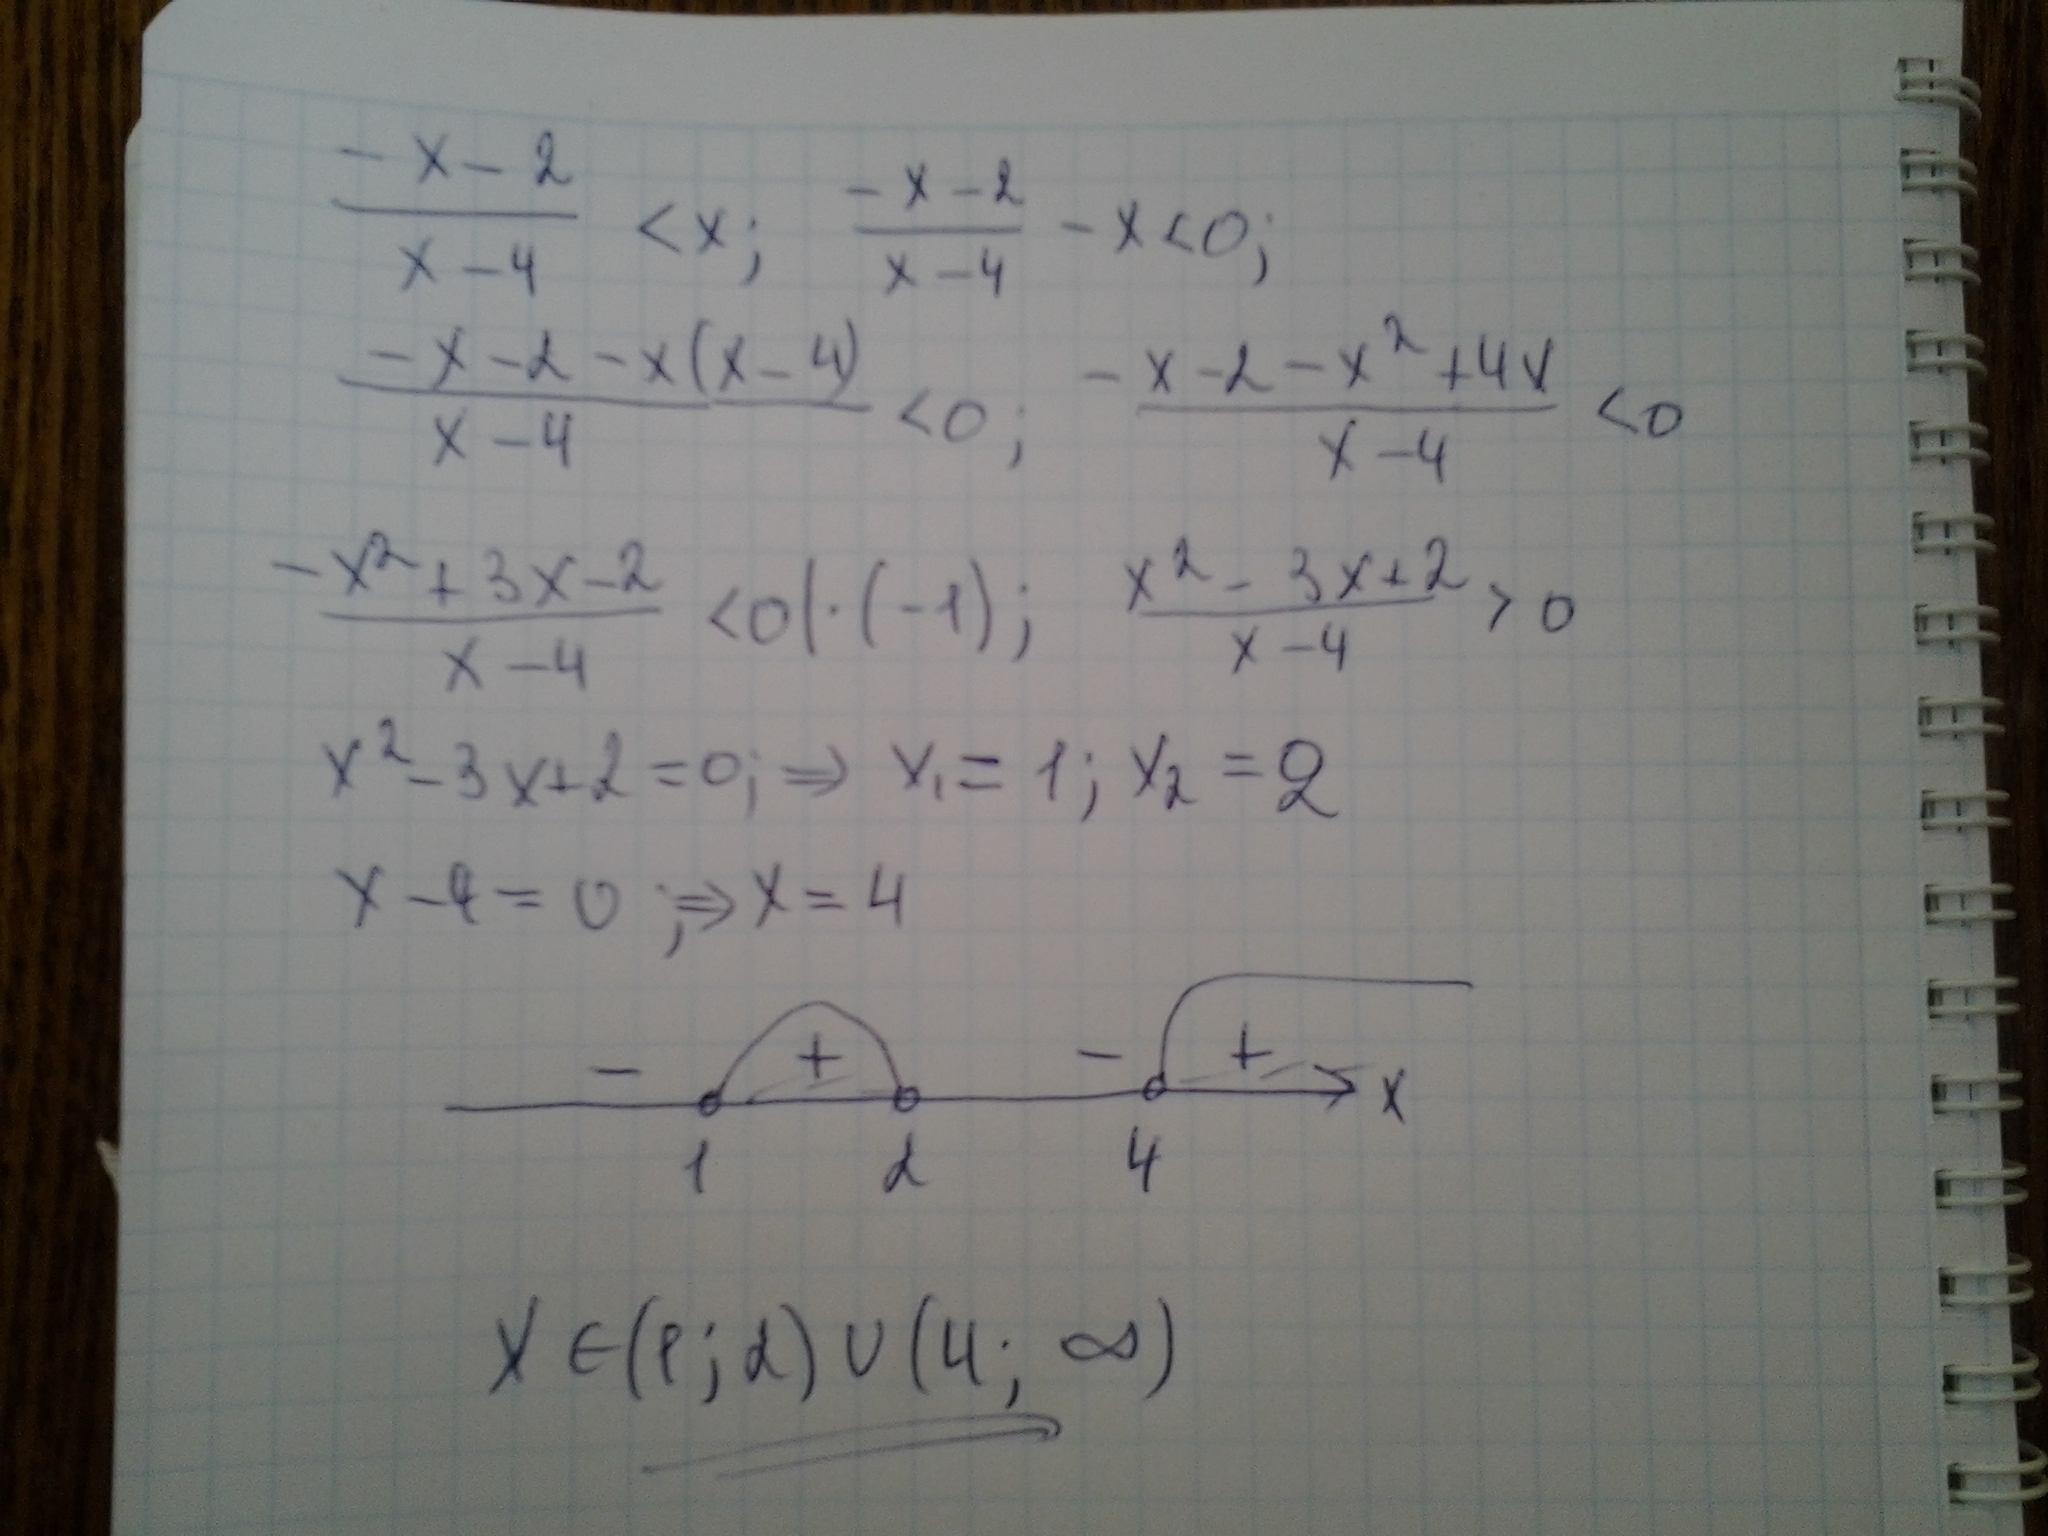 (-x-2)/(x-4) <x; (-x-2)/(x-4) -x<0;
(-x-2-x(x-4))/(x-4) <0; (-x-2-x²+4x)/(x-4) <0
(-x²+3x-2)/(x-4) <0|·(-1); (x²-3x+2)/(x-4) >0
x²-3x+2=0; ⇒ x₁=1; x₂=2
x-4=0; ⇒ x=4
- + - +
x
1 2 4
x∈(1;2)∪(4;∞)